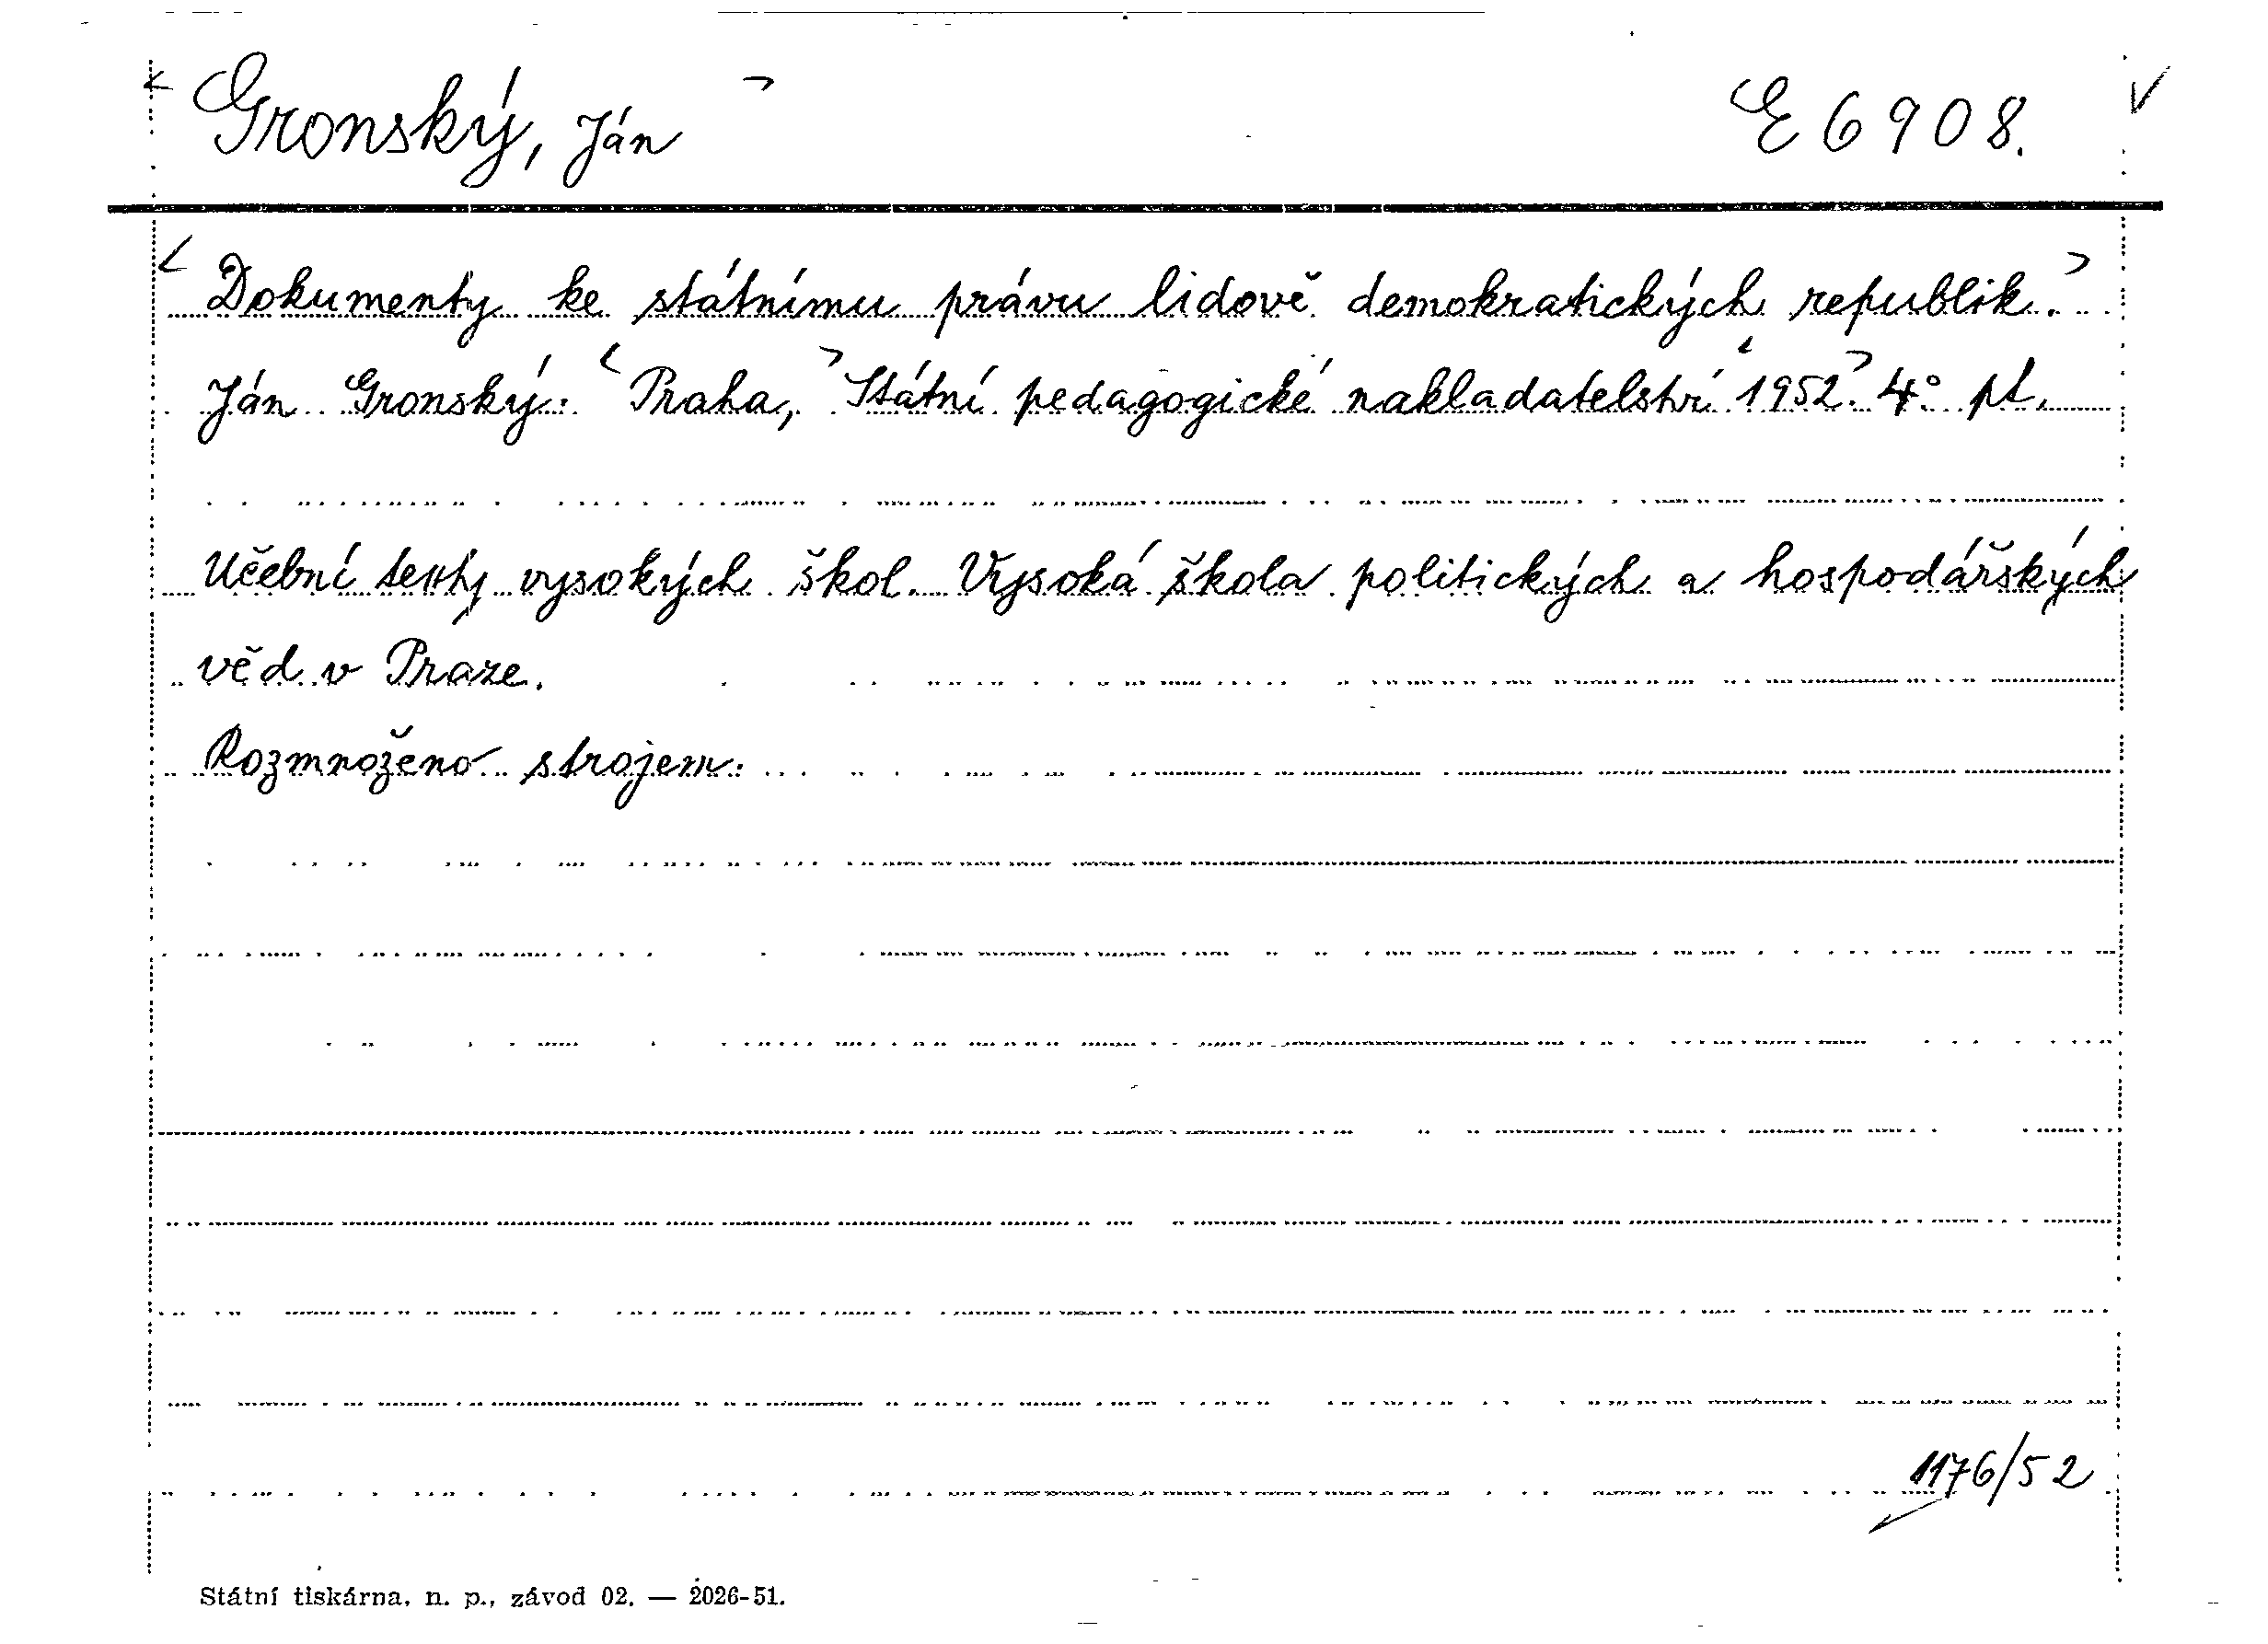 Gronský, Ján E 6908.
Dokumenty ke státnímu právu lidově demokratických republik.
Ján Gronský. Praha, Státní pedagogické nakladatelství 1952. 4° pt.
Učební texty vysokých škol. Vysoká škola politických a hospodářských
věd v Praze.
Rozmnoženo strojem.
1176/52
Státní tiskárna, n. p., závod 02. — 2026-51.